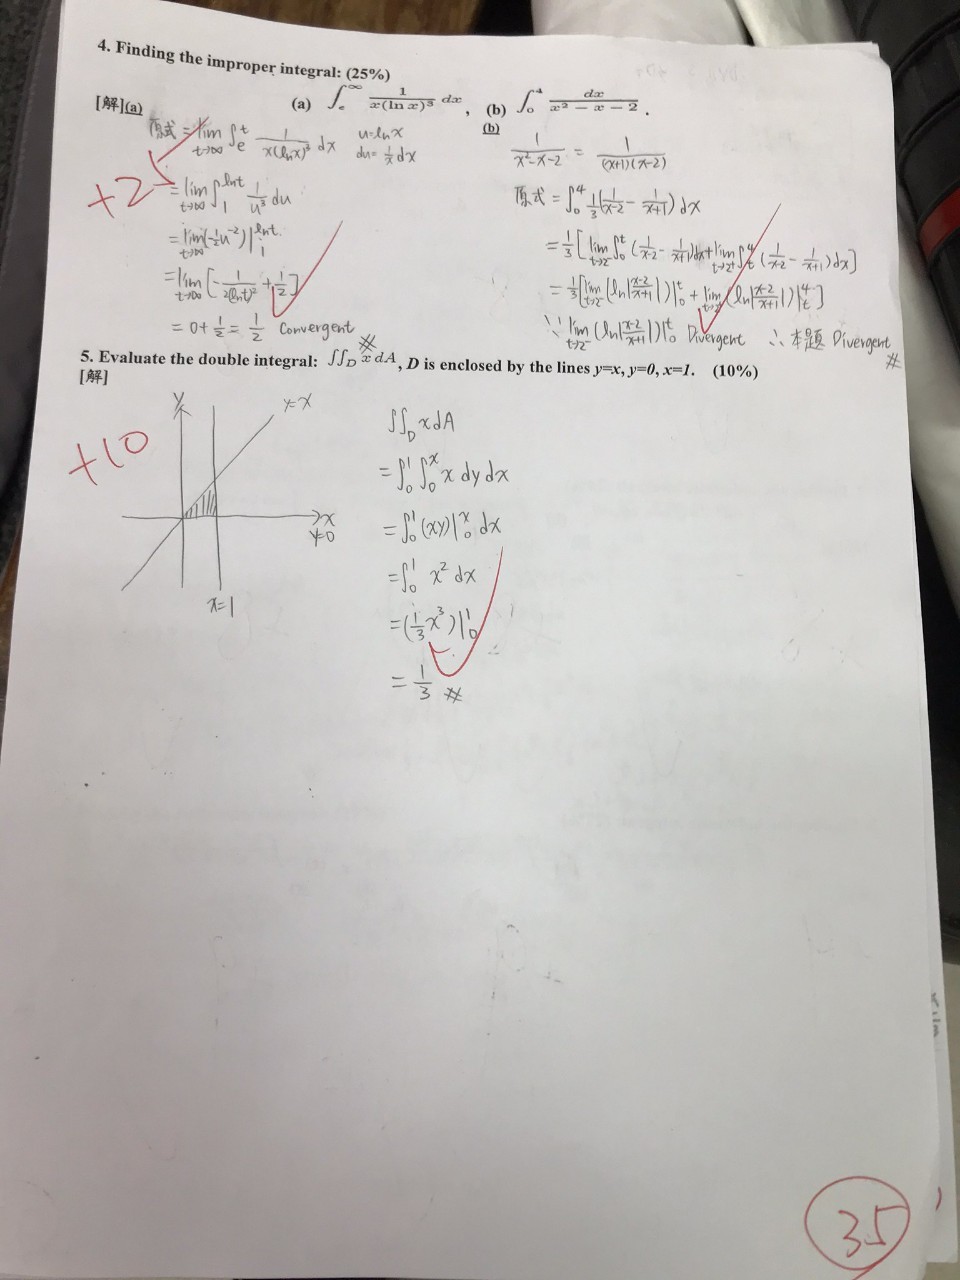 4. Finding the improper integral: (25%)
(a) ∫_e^∞ 1/(x(ln x)³) dx , (b) ∫_0^4 dx/(x² − x − 2) .
[解](a)
原式 = lim_{t→∞} ∫_e^t 1/(x(lnx)³) dx
u=lnx
du= 1/x dx
+25
= lim_{t→∞} ∫_1^{lnt} 1/u³ du
= lim_{t→∞} (-1/2 u⁻²)|_1^{lnt}
= lim_{t→∞} [-1/(2(lnt)²) + 1/2]
= 0 + 1/2 = 1/2 Convergent #
(b)
1/(x²-x-2) = 1/((x+1)(x-2))
原式 = ∫_0^4 1/3 (1/(x-2) - 1/(x+1)) dx
= 1/3 [lim_{t→2⁻} ∫_0^t (1/(x-2) - 1/(x+1)) dx + lim_{t→2⁺} ∫_t^4 (1/(x-2) - 1/(x+1)) dx]
= 1/3 [lim_{t→2⁻} (ln|(x-2)/(x+1)|)|_0^t + lim_{t→2⁺} (ln|(x-2)/(x+1)|)|_t^4]
∵ lim_{t→2⁻} (ln|(x-2)/(x+1)|)|_0^t Divergent ∴ 本題 Divergent #
5. Evaluate the double integral: ∬_D x dA, D is enclosed by the lines y=x, y=0, x=1. (10%)
[解]
+10
y
y=x
x
y=0
x=1
∬_D x dA
= ∫_0^1 ∫_0^x x dy dx
= ∫_0^1 (xy)|_0^x dx
= ∫_0^1 x² dx
= (1/3 x³)|_0^1
= 1/3 #
35